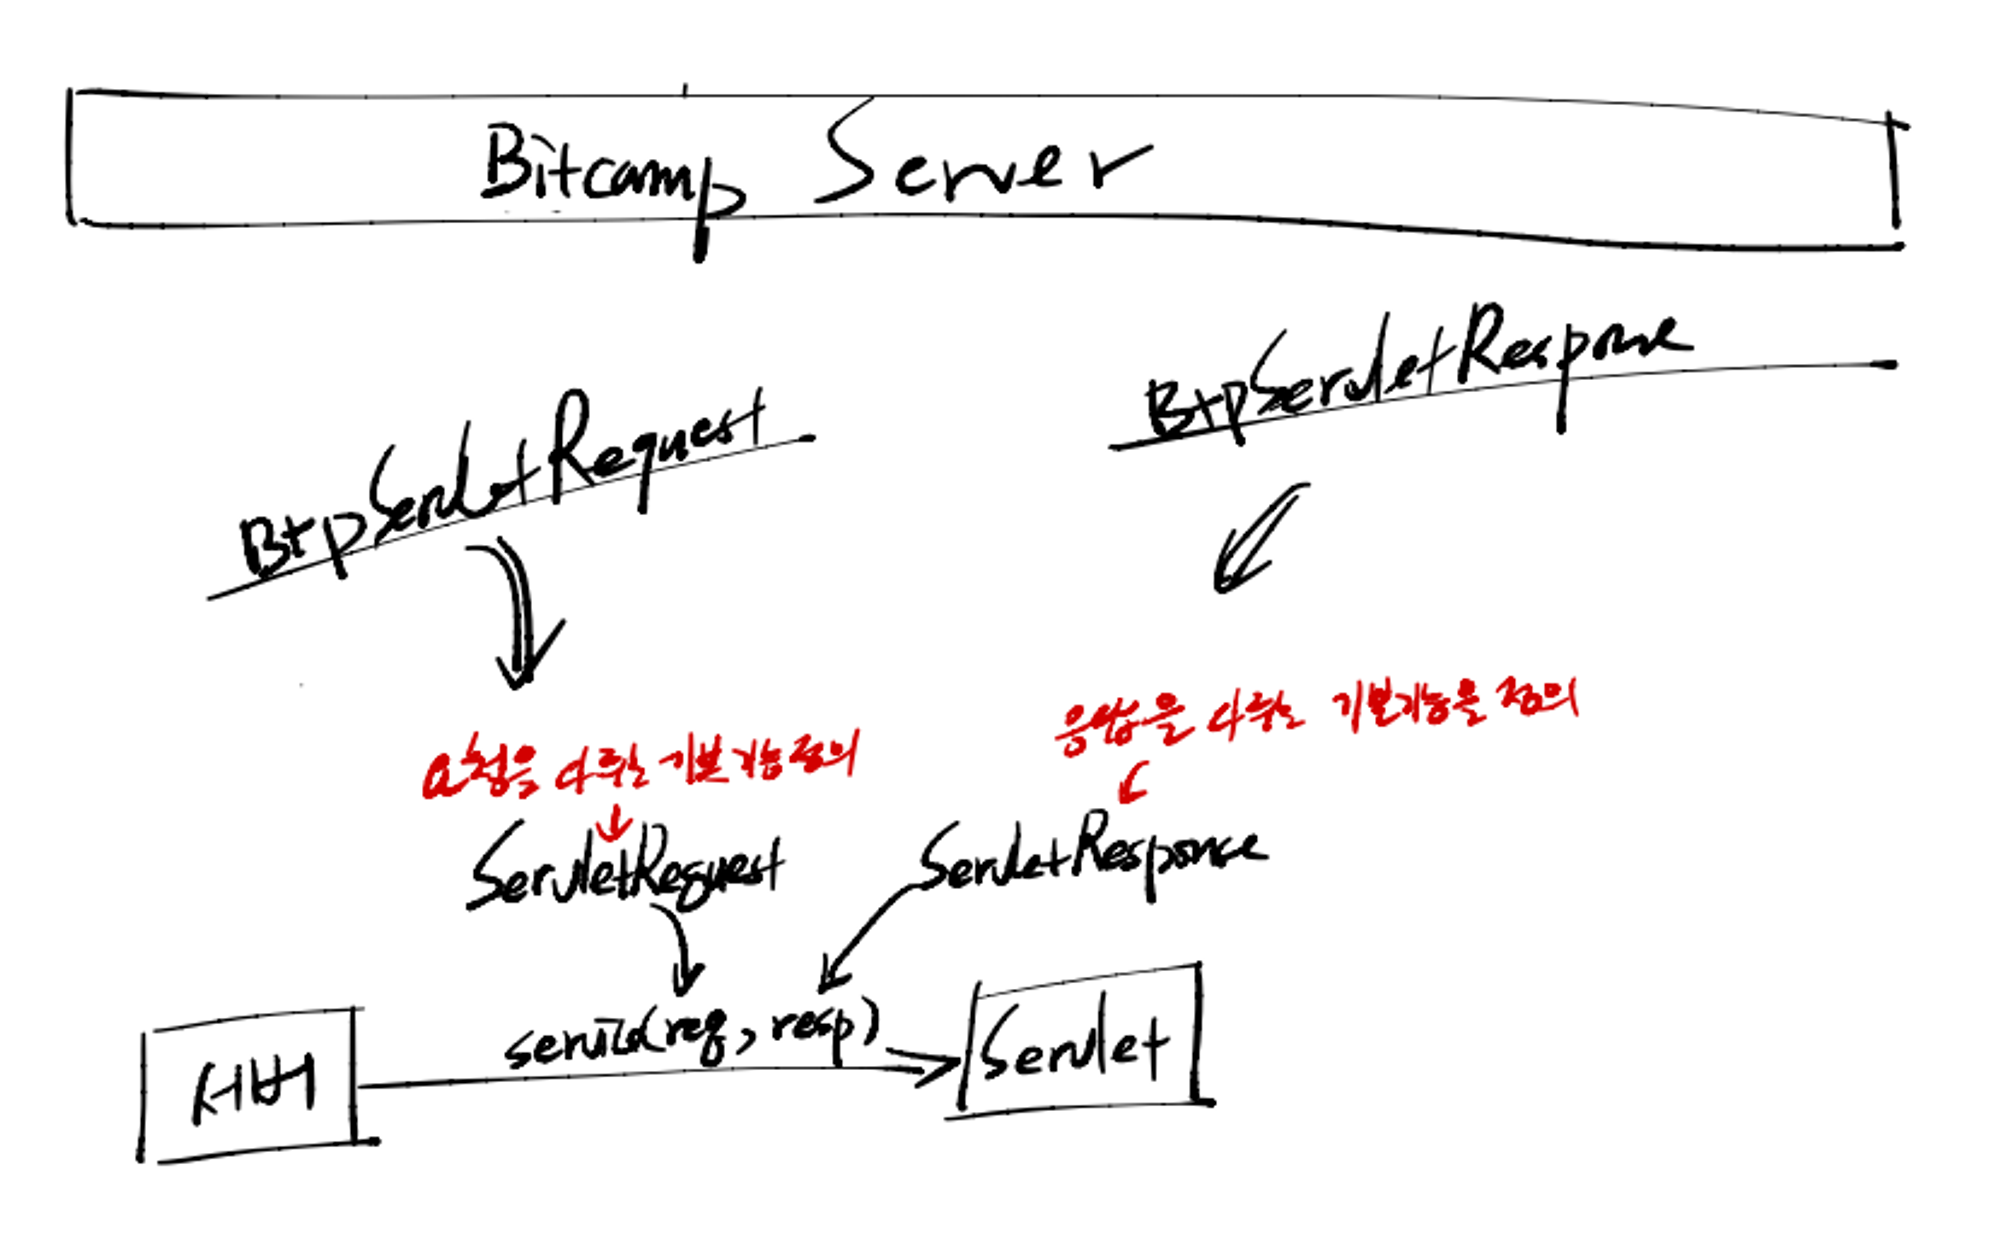 Bitcamp Server
BtpServletResponse
BtpServletRequest
응답을 다루는 기본기능을 정의
요청을 다루는 기본기능정의
ServletRequest
ServletResponse
service(req, resp)
Servlet
서버